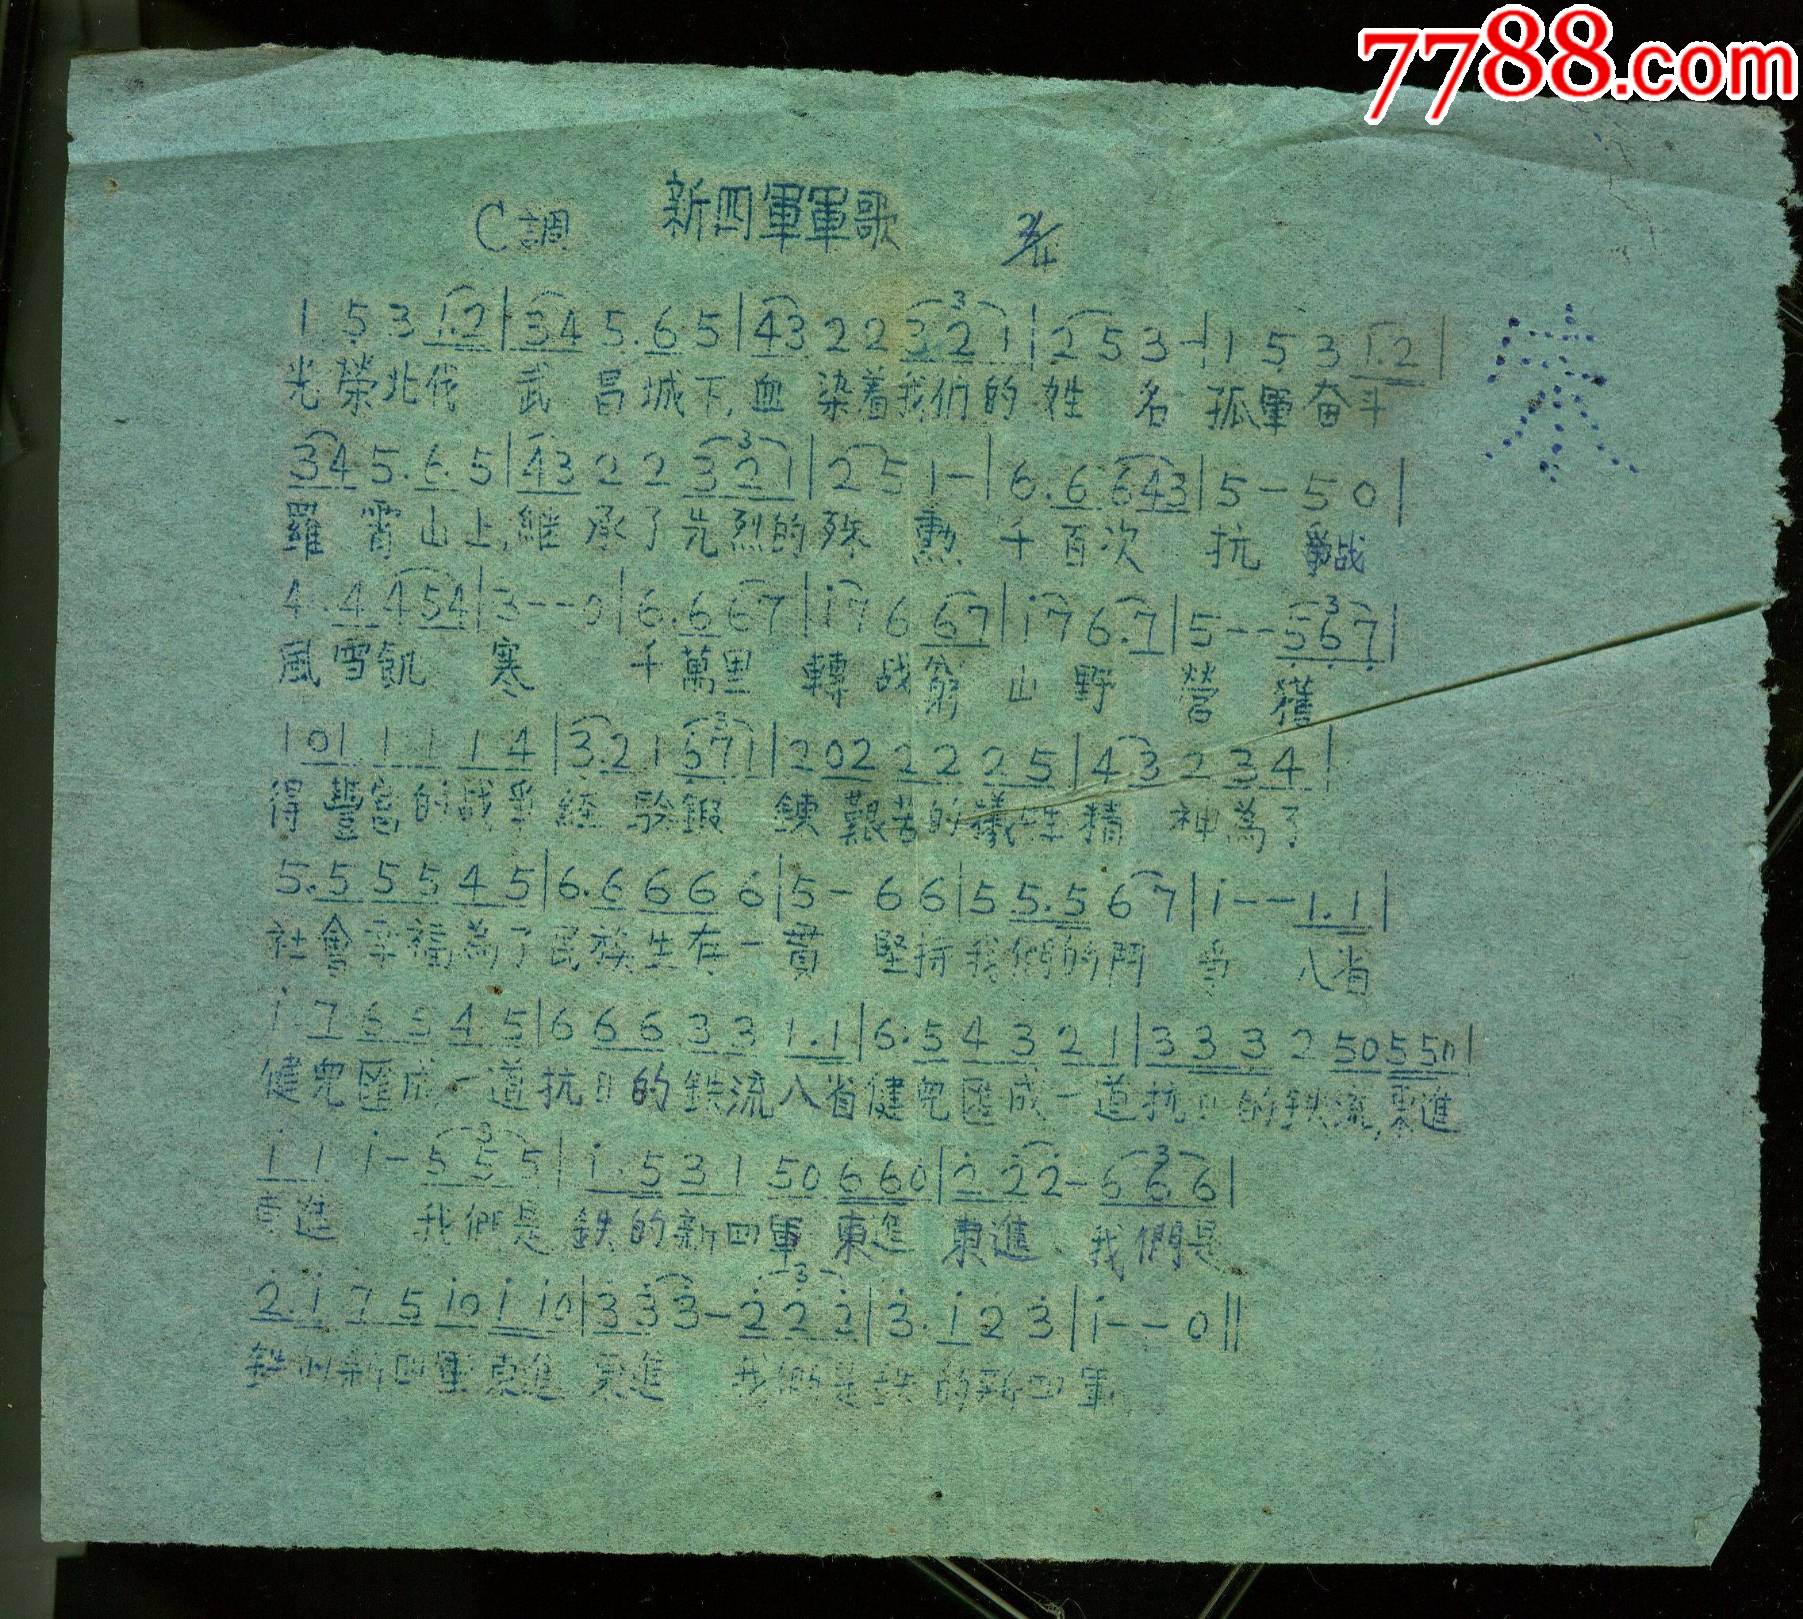 7788.com
新四軍軍歌
C調 2/4
1 5 3 1.2 | 34 5.6 5 | 43 2 2 3 2 1 | 2 5 3 - | 1 5 3 1.2 |
光榮北伐 武 昌城下,血 染着我们的 姓 名 孤軍奋斗
宋
34 5.6 5 | 43 2 2 3 2 1 | 2 5 1 - | 6.6 643 | 5 - 5 0 |
羅 霄山上,継 承了先烈的殊 勲 千百次 抗 爭战
4.4 454 | 3 - - 0 | 6.6 67 | i7 6 67 | i7 6.7 | 5 - - 567 |
風雪飢 寒 千萬里 轉战窮 山 野 营 獲
1 01 1 1 1 4 | 3.2 1 671 | 2 02 2 2 2 5 | 4 3 2 3 4 |
得豐富的战爭経 驗鍛 鍊艱苦的犧牲精 神為了
5.5 5 5 4 5 | 6.6 6 6 6 | 5 - 6 6 | 5 5.5 6 7 | i - - 1.1 |
社會幸福為了民族生存一貫 堅持我們的鬥 爭 八省
i 7 6 5 4 5 | 6 6 6 3 3 1.1 | 6.5 4 3 2 1 | 3 3 3 2 50 5 50 |
健児匯成一道抗日的鉄流八省健児匯成一道抗日的鉄流,東進
i i i - 5 5 5 | i.5 3 1 50 6 60 | 2 2 2 - 6 6 6 |
東進 我們是 鉄的新四軍 東進 東進 我們是
2.i 7 5 i0 i i0 | 3 3 3 - 2 2 2 | 3.i 2 3 | i - - 0 ||
鉄的新四軍東進 東進 我們是鉄的新四軍